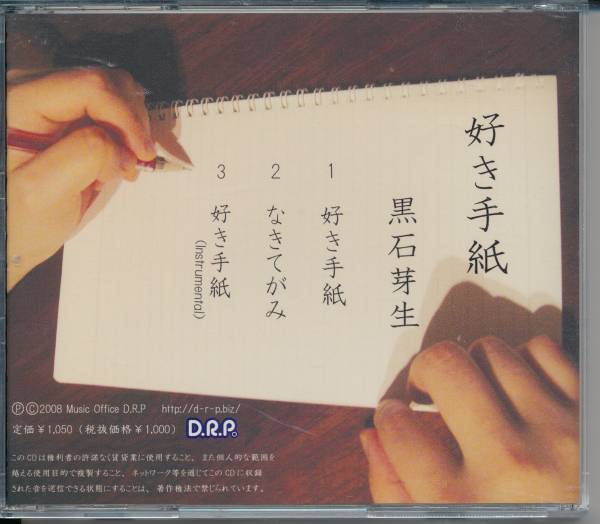 好き手紙
黒石芽生
1 好き手紙
2 なきてがみ
3 好き手紙
(Instrumental)
Ⓟ©2008 Music Office D.R.P http://d-r-p.biz/
定価¥1,050(税抜価格¥1,000) D.R.P.
このCDは権利者の許諾なく賃貸業に使用すること、また個人的な範囲を
越える使用目的で複製すること、ネットワーク等を通じてこのCDに収録
された音を送信できる状態にすることは、著作権法で禁じられています。